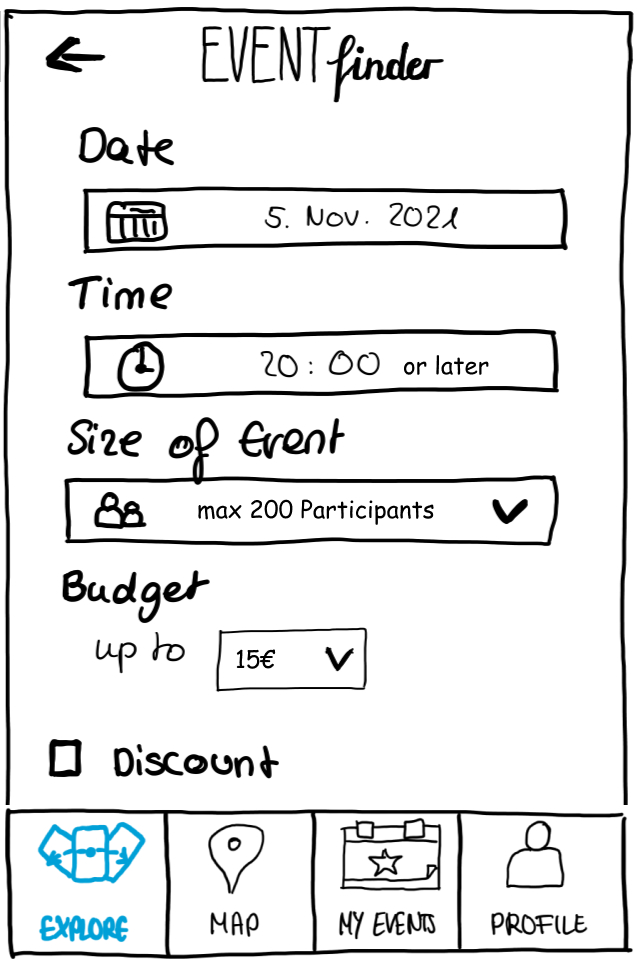 EVENTfinder
Date
5. Nov. 2021
Time
20:00 or later
Size of Event
max 200 Participants
Budget
up to 15€
Discount
EXPLORE MAP MY EVENTS PROFILE